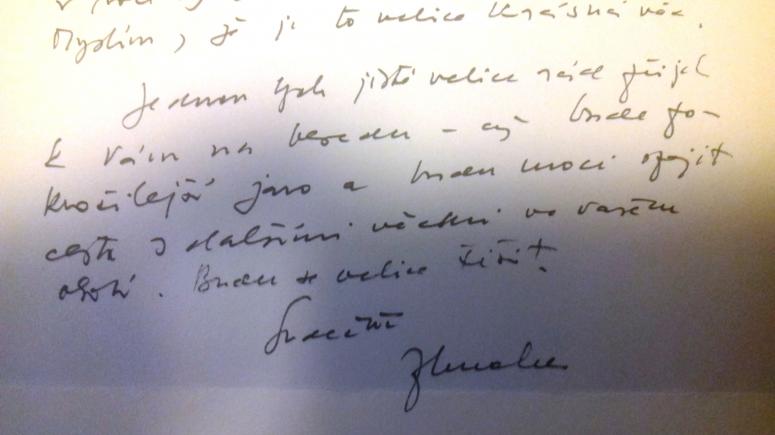 Myslím, že je to velice krásná věc.
Jednou bych jistě velice rád přijel
k Vám na besedu – až bude po-
kročilejší jaro a budu moci spojit
cestu s dalšími věcmi ve vašem
okolí. Budu se velice těšit.
Srdečně